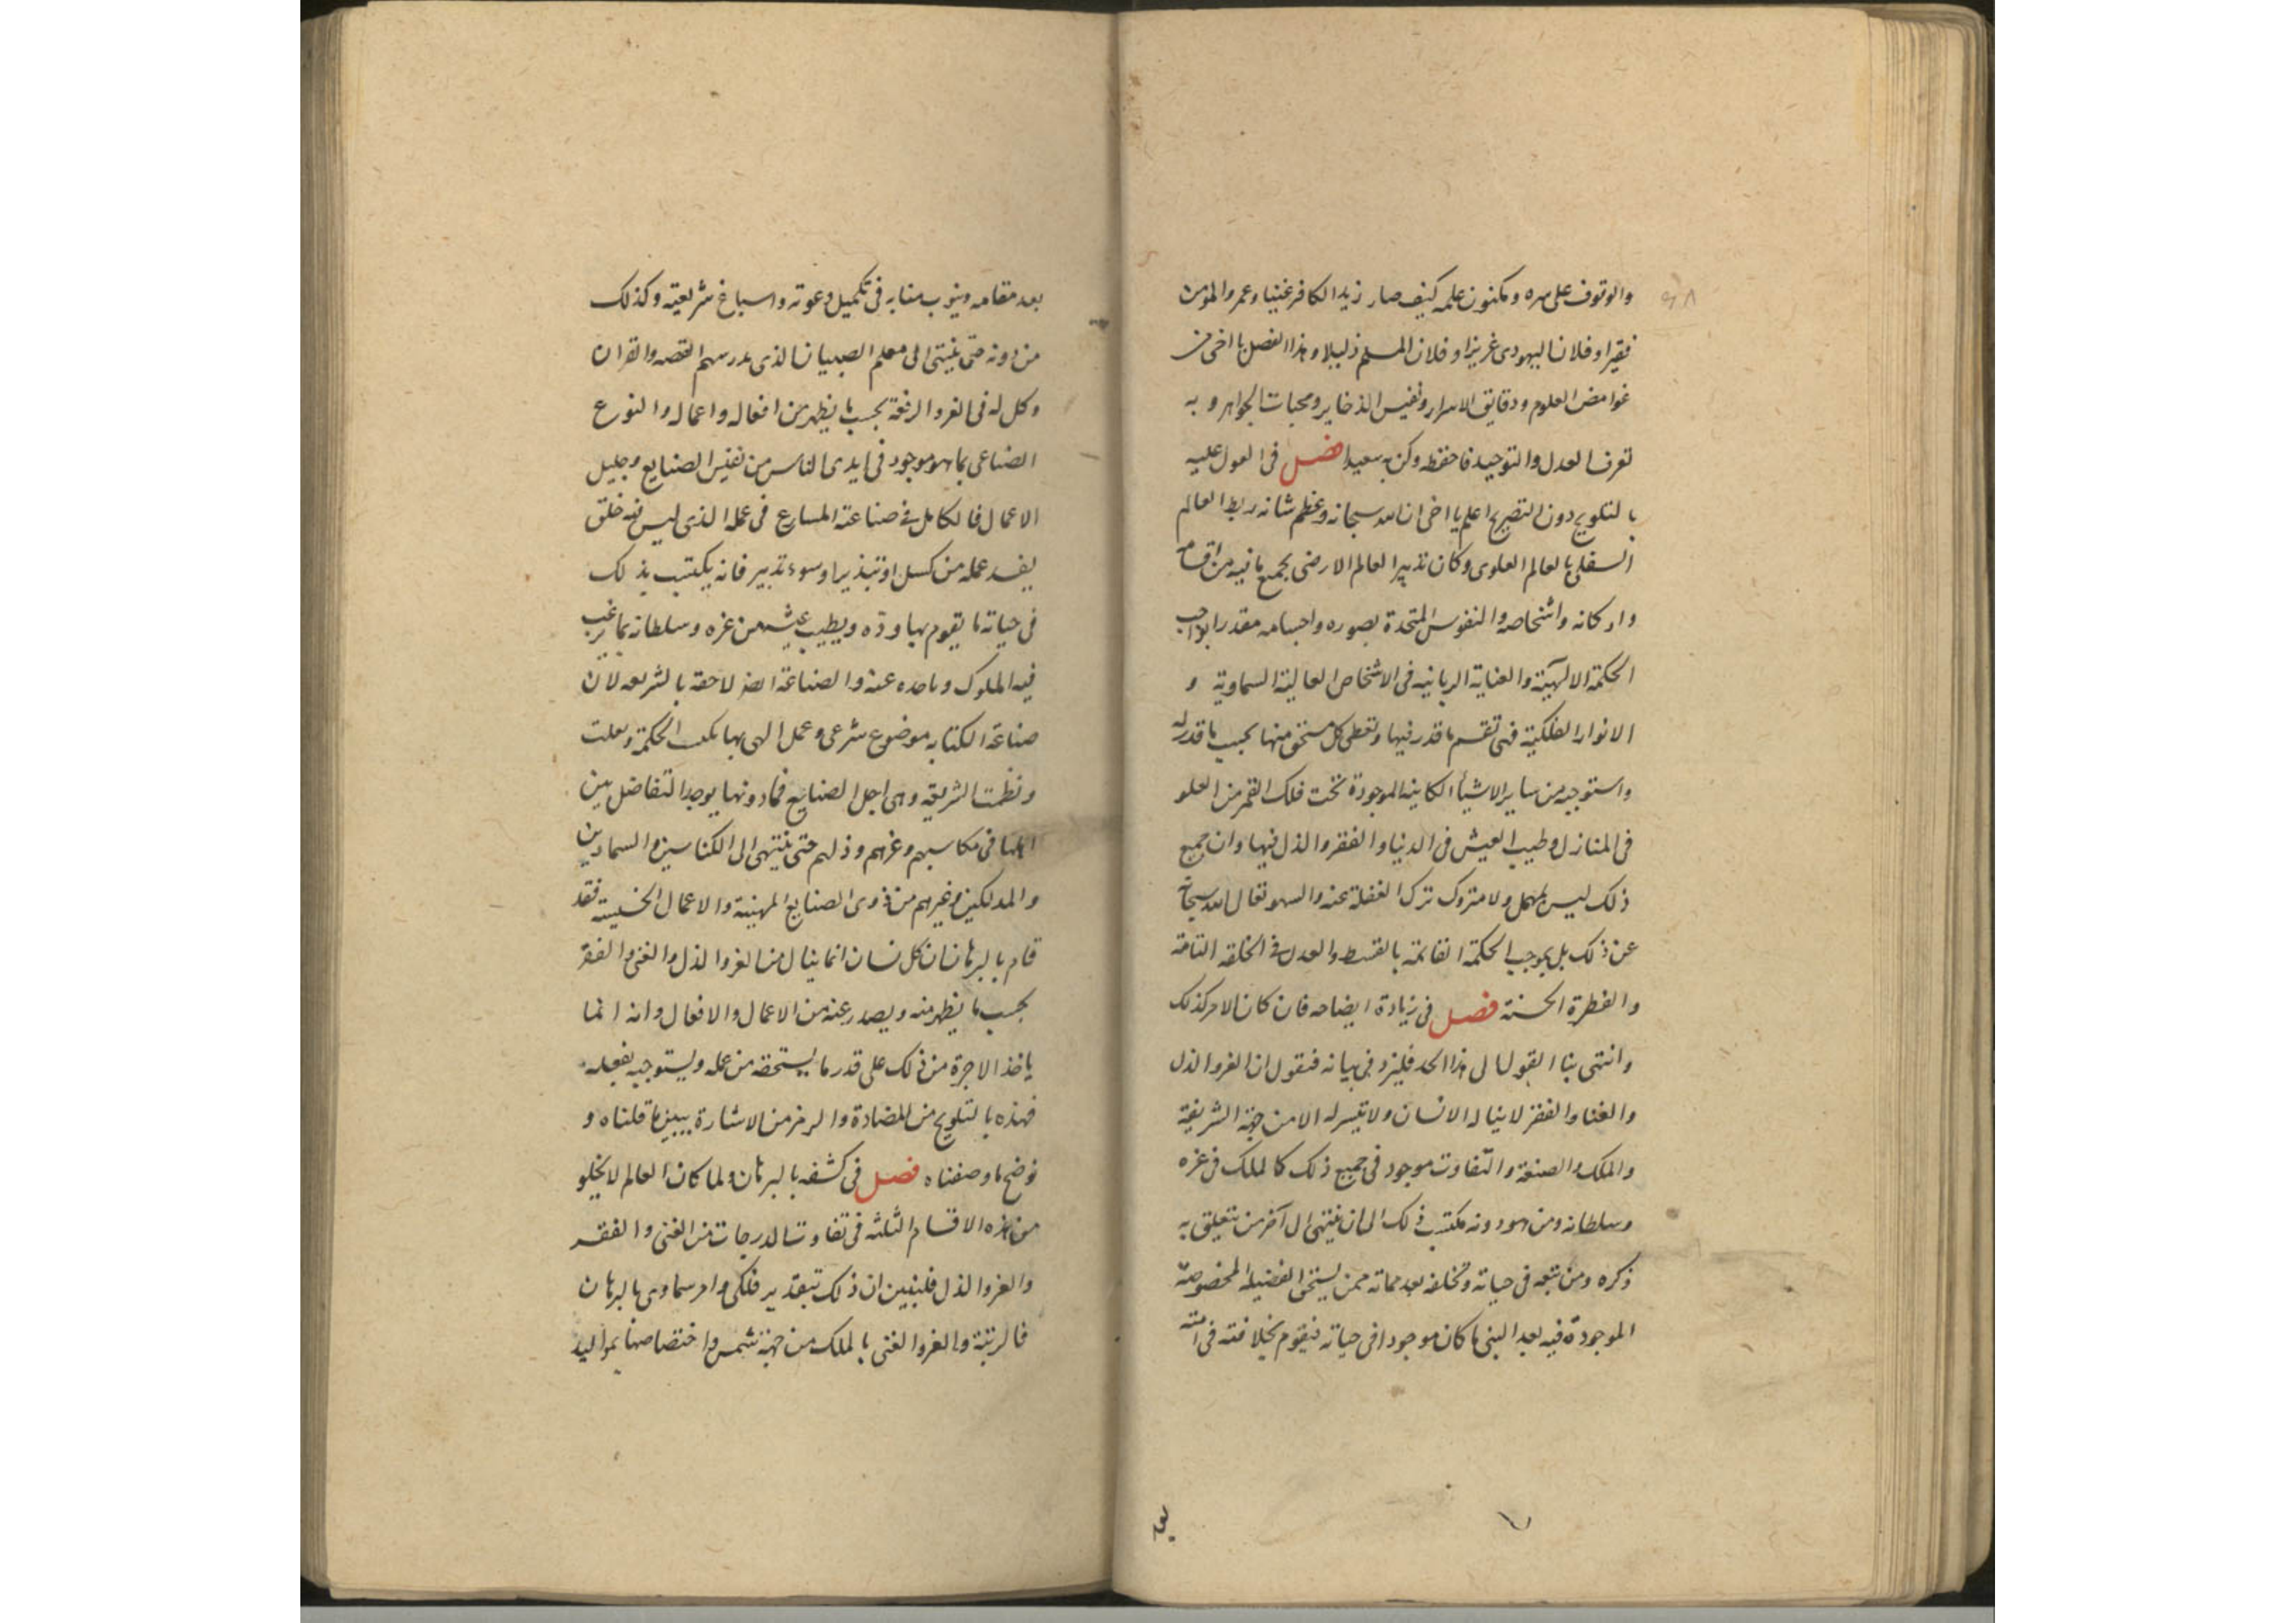 والوقوف على سره ومكنون علمه كيف صار زيدا الكافر غنيا وعمر والمؤمن
فقيرا وفلانا اليهودى عزيزا وفلان المسلم ذليلا وهذا الفصل يا اخى من
غوامض العلوم ودقايق الاسرار ونفيس الذخاير ومخبات الجواهر وبه
تعرف العدل والتوحيد فاحفظه وكن به سعيدا فصل فى القول عليه
بالتلويح دون التصريح اعلم يا اخى ان الله سبحانه وعظم شانه ربط العالم
السفلى بالعالم العلوى وكان تدبير العالم الارضى بجميع ما فيه من اقسامه
واركانه واشخاصه والنفوس المتحدة بصوره واجسامه مقدرا بواجب
الحكمة الالهية والعناية الربانيه فى الاشخاص العالية السماوية و
الانوار الفلكية فهى تقسم ما قدر فيها وتعطى كل مستحق منها بحسب ما قدر له
واستوجبه من ساير الاشياء الكاينه الموجودة تحت فلك القمر من العلو
فى المنازل وطيب العيش فى الدنيا والفقر والذل فيها وان جميع
ذلك ليس بمهمل ولا متروك ترك الغفلة عنه والسهو تعالى الله سبحانه
عن ذلك بل بموجب الحكمة القائمة بالقسط والعدل فى الخلقه التامة
والفطرة الحسنة فصل فى زيادة ايضاحه فان كان الامر كذلك
وانتهى بنا القول الى هذا الحد فليزد فى بيانه فنقول ان العز والذل
والغنا والفقر لا يناله الانسان ولا تيسر له الا من جهة الشريعة
والملك والصنعة والتفاوت موجود فى جميع ذلك كالملك فى عزه
وسلطانه ومن هو دونه مكتسب ذلك الى ان ينتهى الى آخر من يتعلق به
ذكره ومن يتبعه فى حياته وتخلفه بعد مماته ممن يستحق الفضيلة المخصوصة
الموجودة فيه بعد النبى ما كان موجودا فى حياته فيقوم بخلافته فى امته
بعد
بعد مقامه وينوب منابه فى تكميل دعوته واسباغ شريعته وكذلك
من دونه حتى ينتهى الى معلم الصبيان الذى يدرسهم القصه والقران
وكل له فى العز والرفعة بحسب ما يظهر من افعاله واعماله والنوع
الصناعى بما هو موجود فى ايدى الناس من نفيس الصنايع وجليل
الاعمال فالكامل فى صناعته المسارع فى عمله الذى ليس فيه خلق
يفسد عمله من كسل او تبذير او سوء تدبير فانه يكتسب بذلك
فى حياته ما يقوم بها وده ويطيب عيشه من عزه وسلطانه بما يرغب
فيه الملوك وياخذه عنه والصناعة ايضا لاحقه بالشريعه لان
صناعة الكتابه موضوع شرعى وعمل الهى بها الحكمة
ونظمت الشريعة وهى اجل الصنايع فما دونها يوجد التفاضل بين
اهلها فى مكاسبهم وعزهم وذلهم حتى ينتهى الى الكناسين والسمادين
والمدلكين وغيرهم من ذوى الصنايع المهينة والاعمال الخسيسة فقد
قام بالبرهان ان كل انسان انما ينال من العز والذل والغنى والفقر
بحسب ما يظهر منه ويصدر عنه من الاعمال والافعال وانه انما
ياخذ الاجرة من ذلك على قدر ما يستحقه من عمله ويستوجبه بفعله
فهذه بالتلويح من المضادة والرمز من الاشارة يبين ما قلناه و
نوضح ما وصفناه فصل فى كشفه بالبرهان ولما كان العالم لا يخلو
من هذه الاقسام الثلثه فى تفاوت الدرجات من الغنى والفقر
والعز والذل فلنبين ان ذلك بتقدير فلكى وامر سماوى بالبرهان
فالرتبة والعز والغنى بالملك من جهة شمس واختصاصها بمواليد